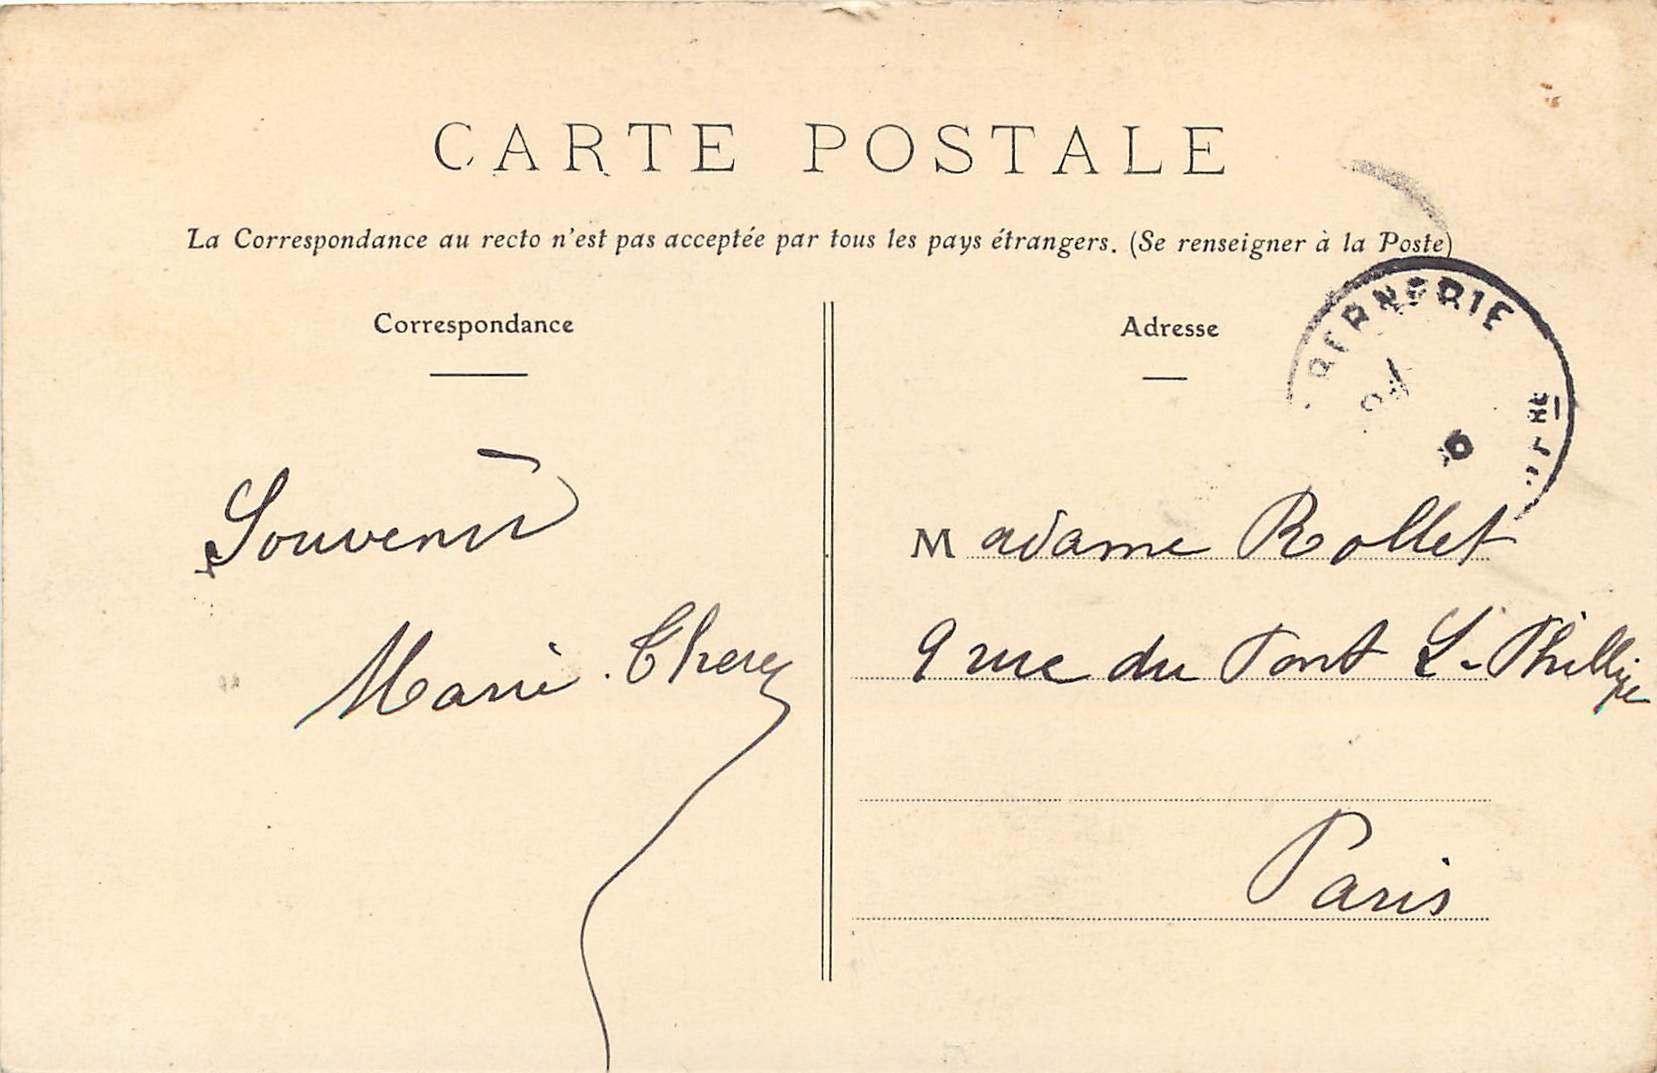 CARTE POSTALE
La Correspondance au recto n'est pas acceptée par tous les pays étrangers. (Se renseigner à la Poste)
Correspondance
Souvenir
Marie-Therez
Adresse
BERNERIE
Madame Rollet
9 rue du Pont L-Phillipe
Paris